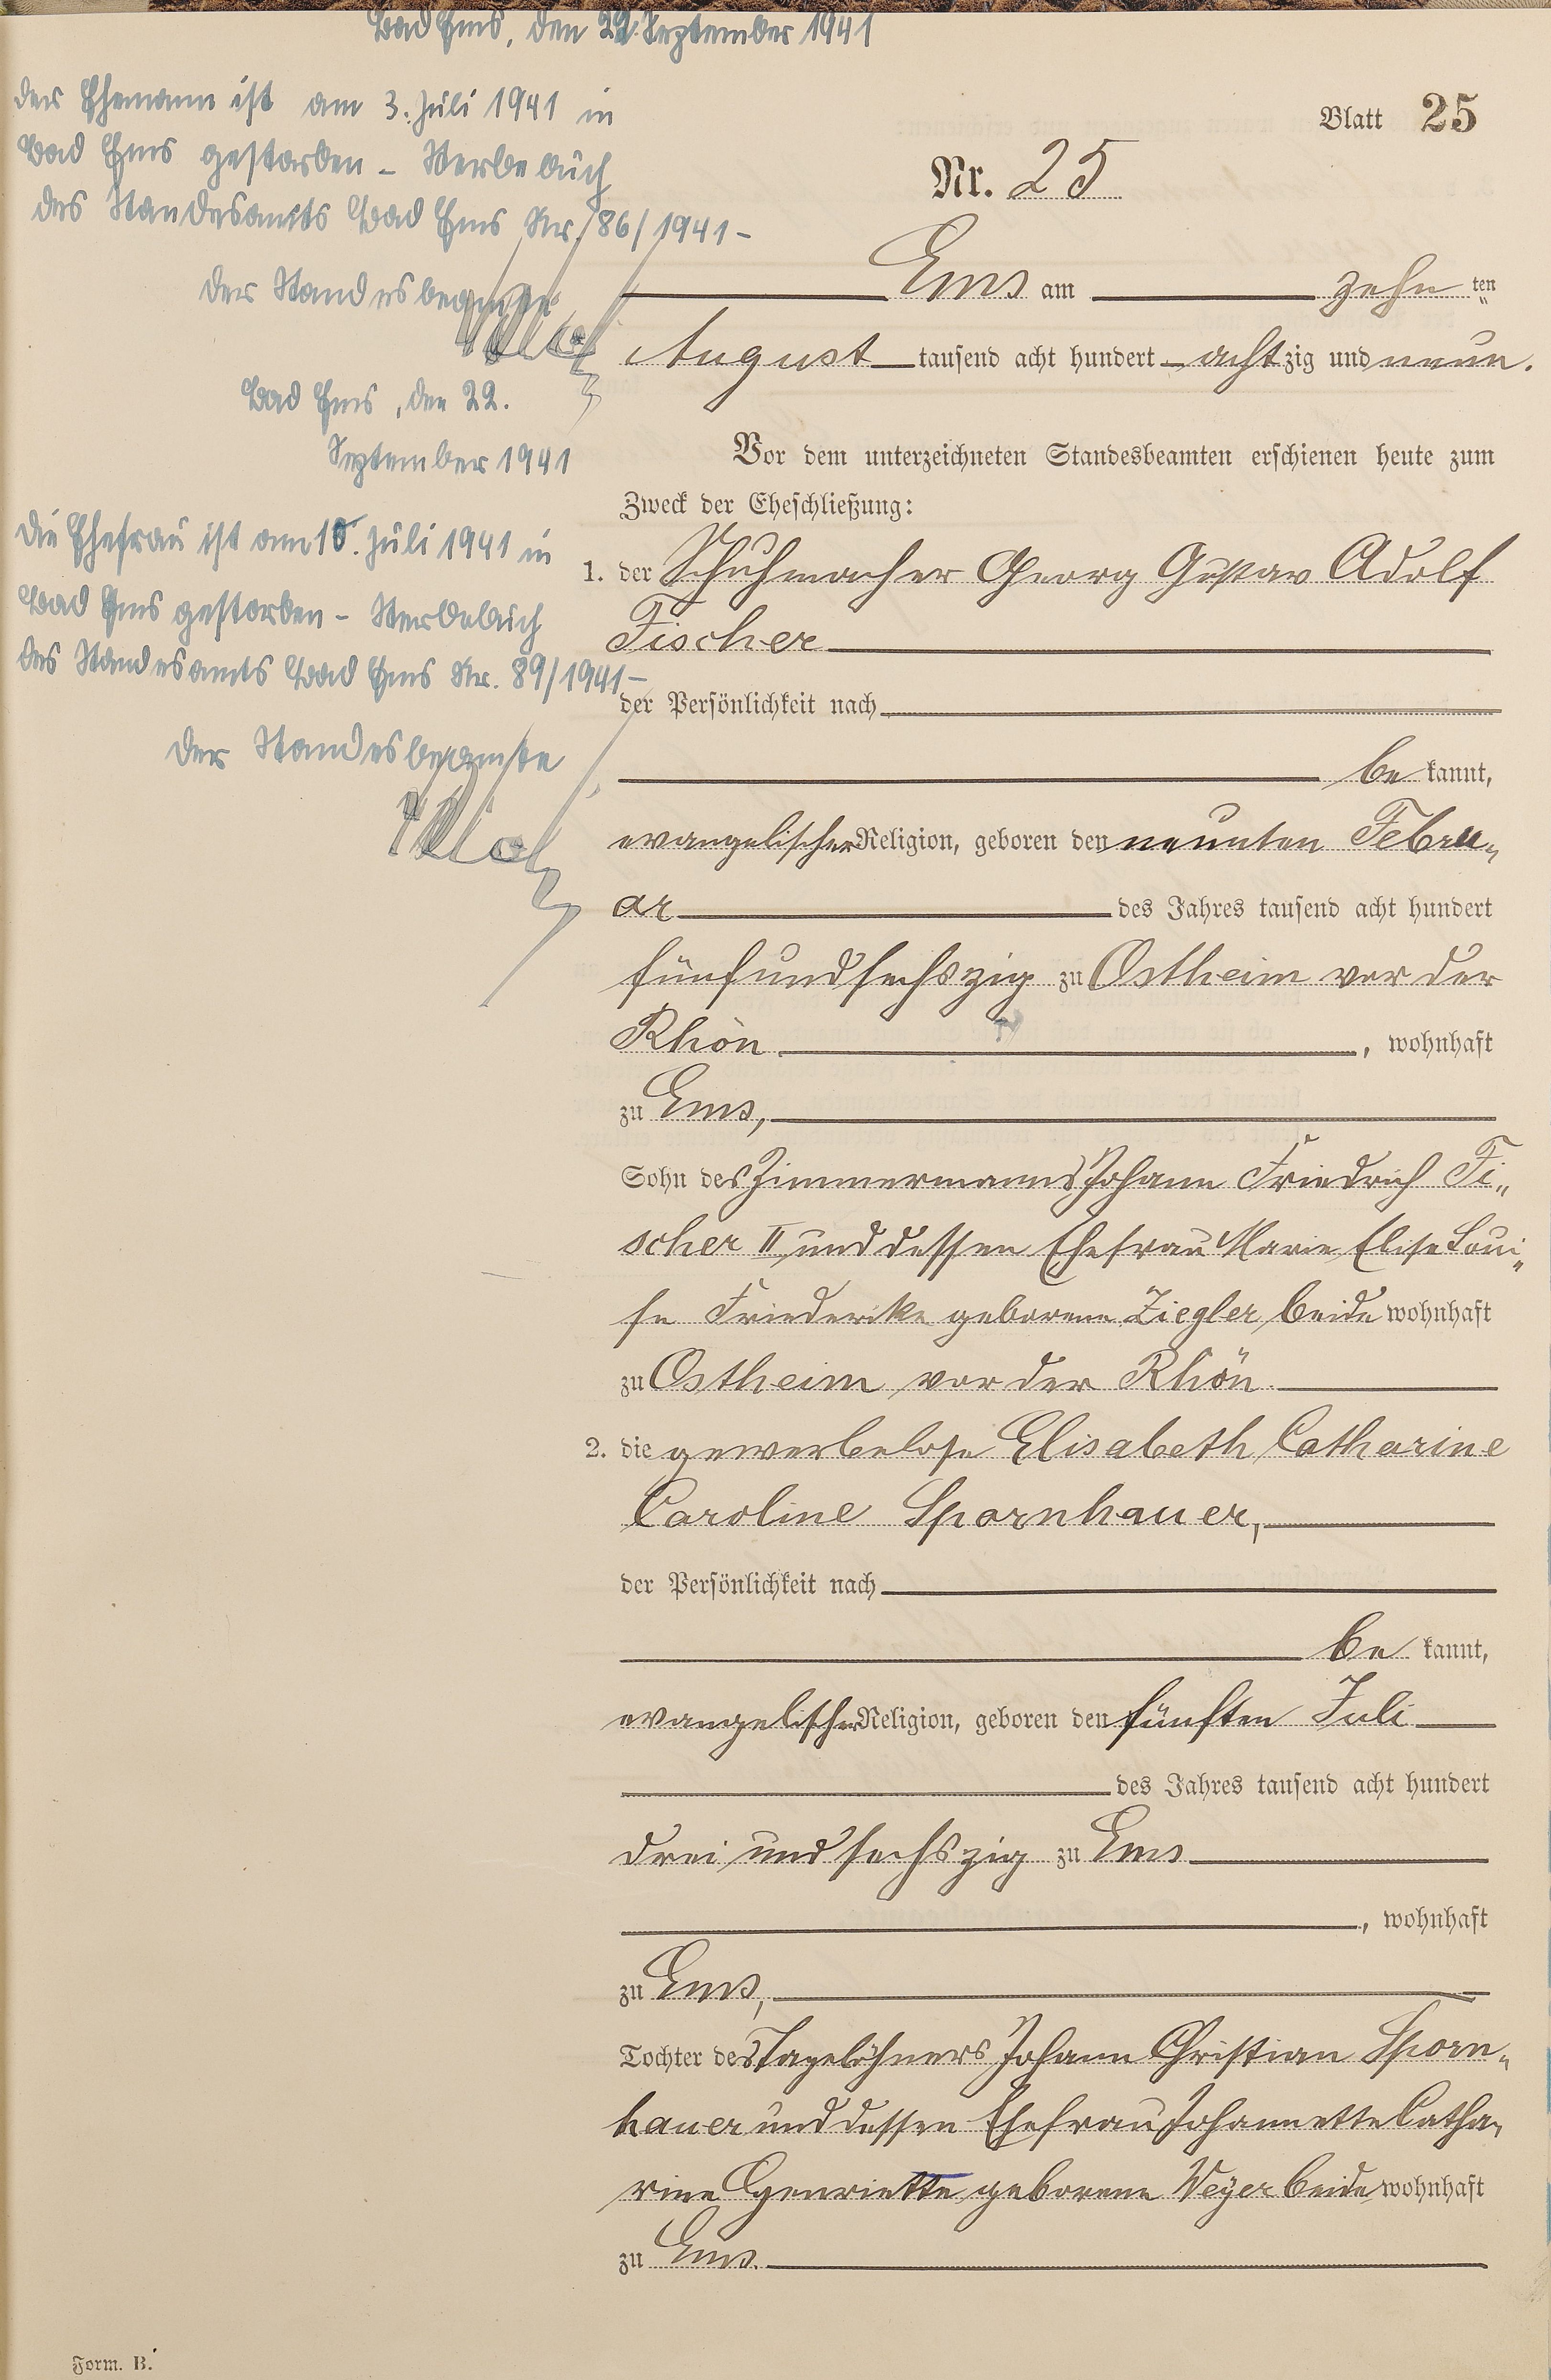 Bad Ems, den 22. September 1941
Der Ehemann ist am 3. Juli 1941 in
Bad Ems gestorben – Sterbebuch
des Standesamts Bad Ems Nr. 86/1941 –
Der Standesbeamte
Bad Ems, den 22.
September 1941
Die Ehefrau ist am 10. Juli 1941 in
Bad Ems gestorben – Sterbebuch
des Standesamts Bad Ems Nr. 89/1941 –
Der Standesbeamte
Blatt 25
Nr. 25
Ems am zehnten
August tausend acht hundert achtzig und neun.
Vor dem unterzeichneten Standesbeamten erschienen heute zum
Zweck der Eheschließung:
1. der Schuhmacher Georg Gustav Adolf
Fischer
der Persönlichkeit nach
be kannt,
evangelischer Religion, geboren den neunten Febru-
ar des Jahres tausend acht hundert
fünfundsechszig zu Ostheim vor der
Rhön, wohnhaft
zu Ems,
Sohn des Zimmermanns Johann Friedrich Fi-
scher II und dessen Ehefrau Marie Elise Loui-
se Friederike geborene Ziegler, beide wohnhaft
zu Ostheim vor der Rhön.
2. die gewerbelose Elisabeth Catharine
Caroline Spornhauer,
der Persönlichkeit nach
be kannt,
evangelischer Religion, geboren den fünften Juli
des Jahres tausend acht hundert
drei und sechszig zu Ems
, wohnhaft
zu Ems,
Tochter des Tagelöhners Johann Christian Sporn-
hauer und dessen Ehefrau Johannette Catha-
rine Henriette geborene Weyer beide wohnhaft
zu Ems.
Form. B.